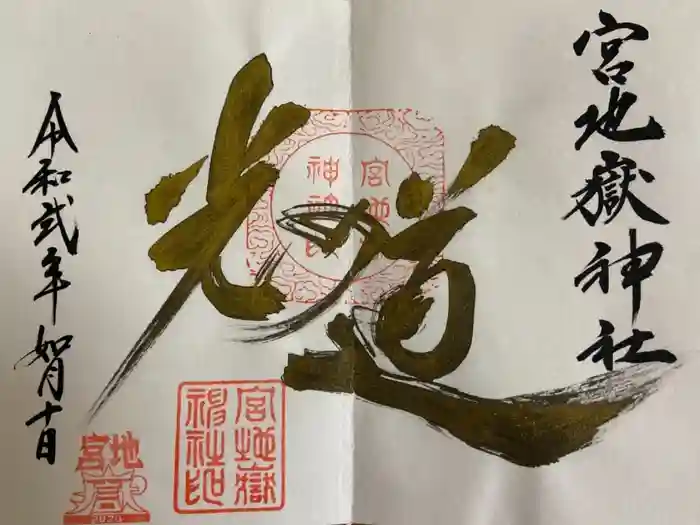 宮地嶽神社
光の道
宮地嶽
神社印
令和弐年如月十日
宮地嶽
神社印
宮地
2020